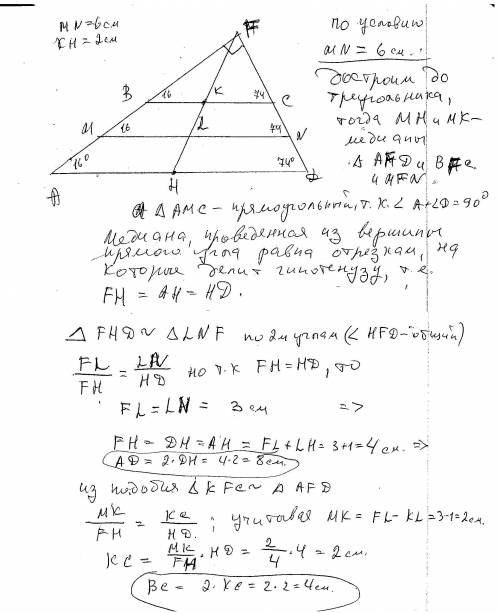 MN=6см
KH=2см
F
B 16 K 74 C
M 16 L 74 N
16° 74°
A H D
по условию
MN = 6 см.
достроим до
треугольника,
тогда MH и MK-
медианы
△ AFD и BFC
и MFN.
△ AMC - прямоугольный, т.к. ∠A+∠D=90°
Медиана, проведенная из вершины
прямого угла равна отрезкам, на
которые делит гипотенузу, т.е.
FH = AH = HD.
△ FHD ∾ △LNF по 2м углам (∠ HFD-общий)
FL/FH = LN/HD но т.к FH=HD, то
FL = LN = 3 см =>
FH = DH = AH = FL + LH = 3+1 = 4 см. =>
AD = 2·DH = 4·2 = 8см.
из подобия △ KFC ∾ △ AFD
MK/FH = KC/HD ; учитывая MK = FL - KL = 3-1=2см.
KC = MK/FH · HD = 2/4 · 4 = 2 см.
BC = 2·KC = 2·2 = 4см.